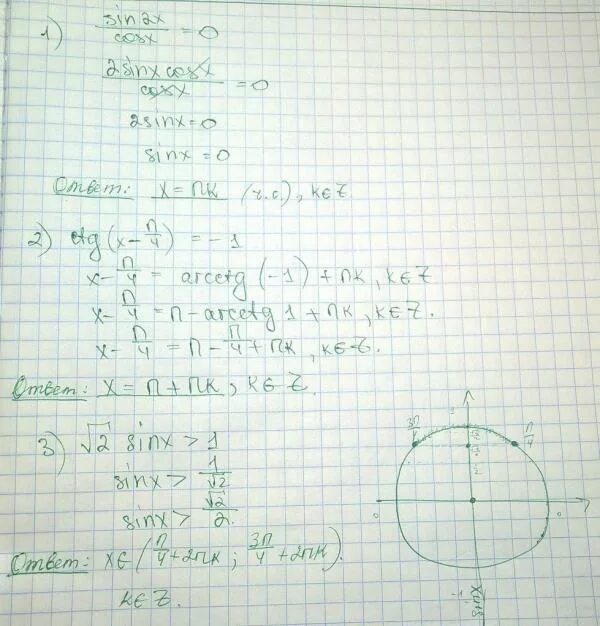 1) sin2x/cosx = 0
2sinx cosx/cosx = 0
2sinx = 0
sinx = 0
Ответ: x = πk (ч.с.), k∈Z
2) ctg(x - π/4) = -1
x - π/4 = arcctg(-1) + πk, k∈Z
x - π/4 = π - arcctg 1 + πk, k∈Z.
x - π/4 = π - π/4 + πk, k∈Z.
Ответ: x = π + πk, k∈Z.
3) √2 sinx > 1
sinx > 1/√2
sinx > √2/2.
Ответ: x∈(π/4 + 2πk; 3π/4 + 2πk).
k∈Z.
3π/4
π/4
0
0
-1
sinx